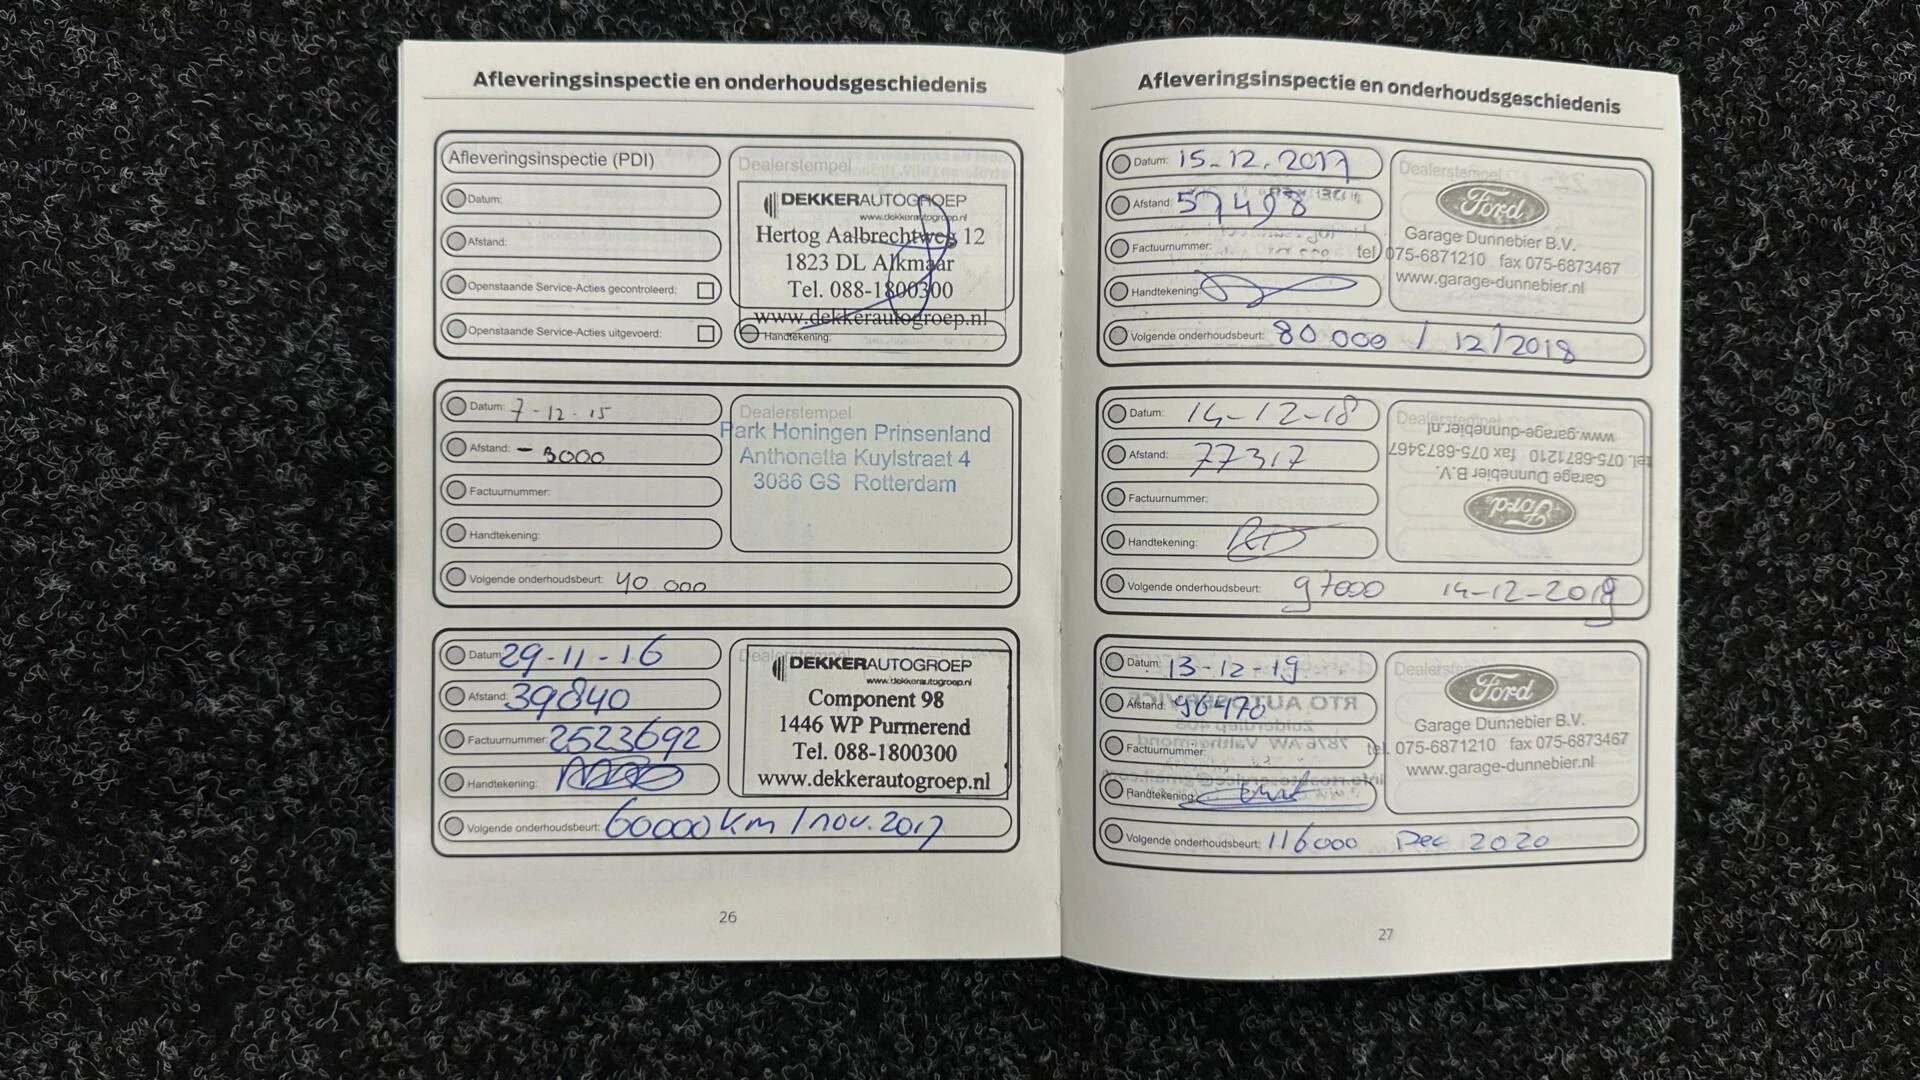 Afleveringsinspectie en onderhoudsgeschiedenis
Afleveringsinspectie (PDI)
Datum:
Afstand:
Openstaande Service-Acties gecontroleerd:
Openstaande Service-Acties uitgevoerd:
Dealerstempel
DEKKERAUTOGROEP
www.dekkerautogroep.nl
Hertog Aalbrechtweg 12
1823 DL Alkmaar
Tel. 088-1800300
www.dekkerautogroep.nl
Handtekening:
Datum: 7-12-15
Afstand: - 3000
Factuurnummer:
Handtekening:
Volgende onderhoudsbeurt: 40.000
Dealerstempel
Park Honingen Prinsenland
Anthonetta Kuylstraat 4
3086 GS Rotterdam
Datum: 29-11-16
Afstand: 39840
Factuurnummer: 2523692
Handtekening:
Volgende onderhoudsbeurt: 60000 km / nov. 2017
Dealerstempel
DEKKERAUTOGROEP
www.dekkerautogroep.nl
Component 98
1446 WP Purmerend
Tel. 088-1800300
www.dekkerautogroep.nl
26
Afleveringsinspectie en onderhoudsgeschiedenis
Datum: 15-12.2017
Afstand: 57498
Factuurnummer:
Handtekening:
Volgende onderhoudsbeurt: 80 000 / 12/2018
Dealerstempel
Ford
Garage Dunnebier B.V.
tel. 075-6871210 fax 075-6873467
www.garage-dunnebier.nl
Datum: 14-12-18
Afstand: 77317
Factuurnummer:
Handtekening:
Volgende onderhoudsbeurt: 97000 14-12-2019
Dealerstempel
Ford
Garage Dunnebier B.V.
tel. 075-6871210 fax 075-6873467
www.garage-dunnebier.nl
Datum: 13-12-19
Afstand: 96470
Factuurnummer:
Handtekening:
Volgende onderhoudsbeurt: 116000 Dec 2020
Dealerstempel
Ford
Garage Dunnebier B.V.
tel. 075-6871210 fax 075-6873467
www.garage-dunnebier.nl
27